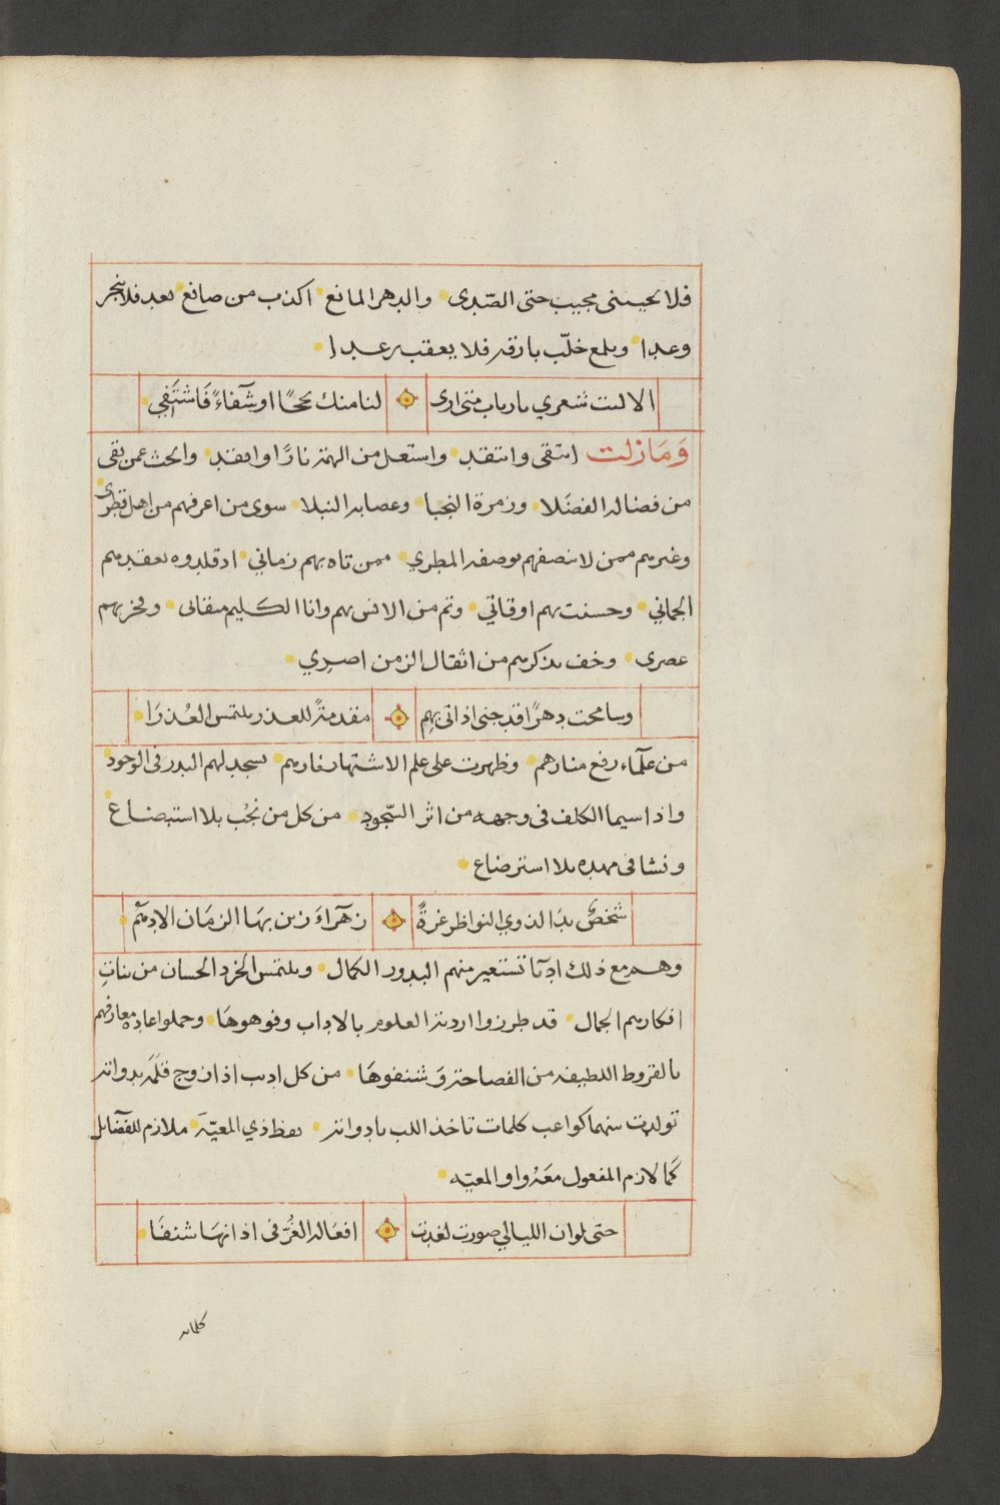 فلا يجيبنى مجيب حتى الصّدى والدهر المانع اكذب من صانع يعد فلا ينجز
وعدا ويلمع خلّب بارقه فلا يعقب رعدا
الا ليت شعري يا رباب متى ارى لنا منك نجحًا او شفاءً فاشتفي
وَمَازلت انتقى وانتقد واستعمل من الهمة نارًا واوقد وابحث عمن بقى
من فضالة الفضَلا وزمرة النجبا وعصابة النبلا سوى من اعرفهم من اهل قطرى
وغيرهم ممن لا ينصفهم بوصفه المطري ممن تاه بهم زماني اذ قلدوه بعقدهم
الجماني وحسنت بهم اوقاتي وتم من الانس بهم وانا الكليم ميقاتى وفخر بهم
عصرى وخف بذكرهم من اثقال الزمن اصري
وسامحت دهرًا قد جنى اذ اتى بهم مقدمةً للعذر يلتمس العُذرَا
من علمآء رفع منارهم وظهرت على علم الاشتهار نارهم يسجد لهم البدر فى الوجود
واذا سيما الكلف فى وجهه من اثر السّجود من كل من نجُب بلا استبضاع
ونشا فى مهده بلا استرضاع
شخصٌ بدَا لذوي النواظر غرةً زهرآءَ زين بهَا الزمَان الادهم
وهم مع ذلك ادبَا تستعير منهم البدور الكمال ويلتمس الخرد الحسان من بناتِ
افكارهم الجمال قد طرزوا اردية العلوم بالاداب وفوهوهَا وحملوا عادة معارفهم
بالقروط اللطيفه من الفصاحة وَشنفوهَا من كل اديب اذا زوج قلمَه بدواته
تولدت منهما كواعب كلمات تاخذ اللب بادواته يقظ ذي المعيّة ملازم للفضآئل
كَما لازم المفعول معَهُ واو المعيه
حتى لو ان الليالي صورت لغدت افعَاله الغُرّ فى اذانهَا شنفَا
كلماته